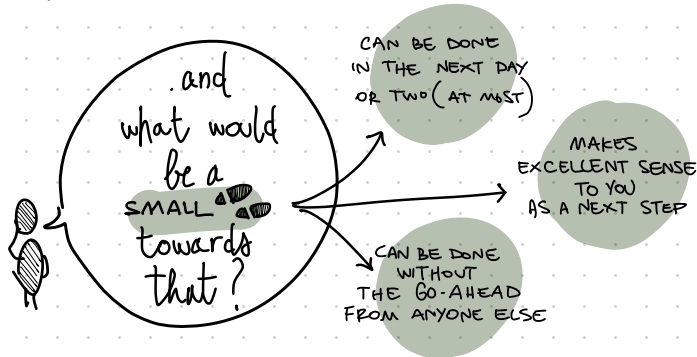 .and
what would
be a
SMALL
towards
that?
CAN BE DONE
IN THE NEXT DAY
OR TWO (AT MOST)
MAKES
EXCELLENT SENSE
TO YOU
AS A NEXT STEP
CAN BE DONE
WITHOUT
THE GO-AHEAD
FROM ANYONE ELSE